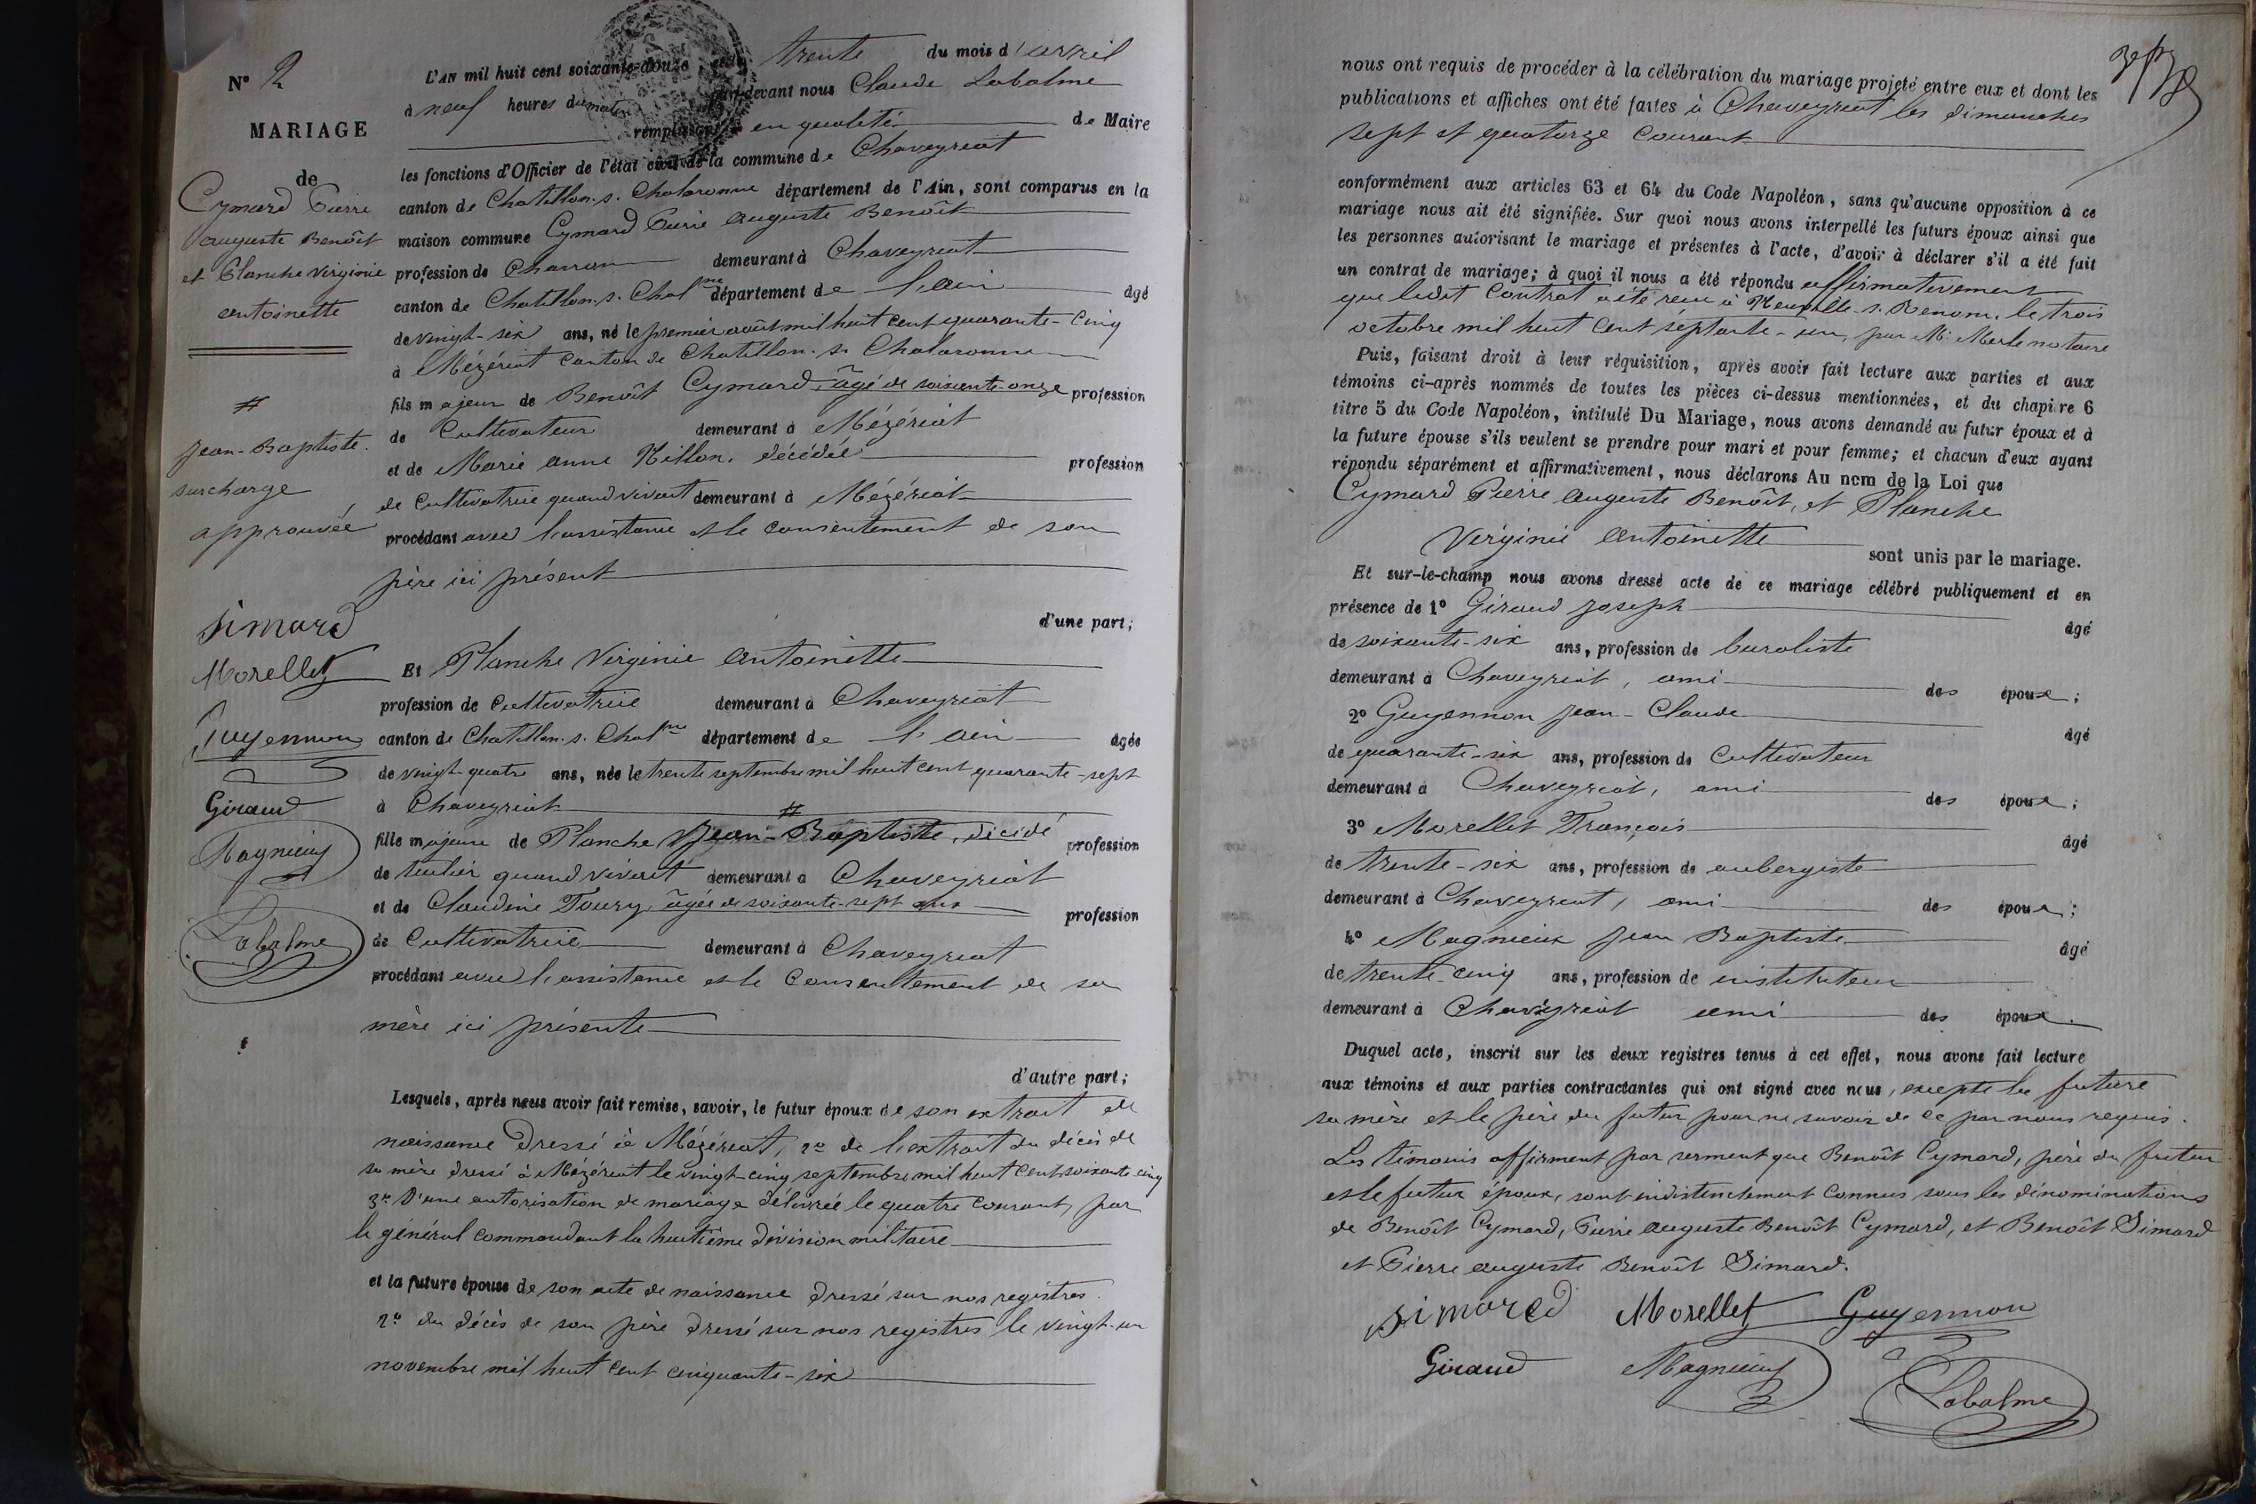 N° 2
MARIAGE
de
Cymard Pierre
auguste Benoît
et Planche Virginie
antoinette
#
Jean-Baptiste.
surcharge
approuvée
Simard
Morellet
Guyennon
Giraud
Magnieux
Labalme
L'AN mil huit cent soixante-douze, et le trente du mois d'avril
à neuf heures du matin par-devant nous Claude Labalme
remplissant en qualité de Maire
les fonctions d'Officier de l'état civil de la commune de Chaveyriat
canton de Chatillon-s. Chalaronne département de l'Ain, sont comparus en la
maison commune Cymard Pierre auguste Benoît
profession de Charron demeurant à Chaveyriat
canton de Chatillon-s. Chalne département de l'ain âgé
de vingt-six ans, né le premier août mil huit cent quarante-cinq
à Mézériat canton de Chatillon-s. Chalaronne
fils majeur de Benoît Cymard, âgé de soixante-onze profession
de Cultivateur demeurant à Mézériat
et de Marie anne Killon, décédée profession
de Cultivatrice quand vivait demeurant à Mézériat
procédant avec l'assistance et le consentement de son
père ici présent
d'une part;
Et Planche Virginie antoinette
profession de Cultivatrice demeurant à Chaveyriat
canton de Chatillon-s. Chalne département de l'ain âgée
de vingt-quatre ans, née le trente septembre mil huit cent quarante-sept
à Chaveyriat
#
fille majeure de Planche Jean-Baptiste, décédé profession
de tuilier quand vivait demeurant à Chaveyriat
et de Claudine Toury, âgée de soixante-sept ans profession
de Cultivatrice demeurant à Chaveyriat
procédant avec l'assistance et le consentement de sa
mère ici présente
d'autre part;
Lesquels, après nous avoir fait remise, savoir, le futur époux de son extrait de
naissance dressé à Mézériat, 2° de l'extrait du décès de
sa mère dressé à Mézériat le vingt-cinq septembre mil huit cent soixante-cinq
3° D'une autorisation de mariage délivrée le quatre courant, par
le général commandant la huitième division militaire
et la future épouse de son acte de naissance dressé sur nos registres.
2° du décès de son père dressé sur nos registres le vingt-un
novembre mil huit cent cinquante-six
nous ont requis de procéder à la célébration du mariage projeté entre eux et dont les
publications et affiches ont été faites à Chaveyriat les dimanches
sept et quatorze courant
conformément aux articles 63 et 64 du Code Napoléon, sans qu'aucune opposition à ce
mariage nous ait été signifiée. Sur quoi nous avons interpellé les futurs époux ainsi que
les personnes autorisant le mariage et présentes à l'acte, d'avoir à déclarer s'il a été fait
un contrat de mariage; à quoi il nous a été répondu affirmativement
que ledit Contrat a été reçu à Neuville-s. Renom, le trois
octobre mil huit cent septante-un, par Me Merle notaire
Puis, faisant droit à leur réquisition, après avoir fait lecture aux parties et aux
témoins ci-après nommés de toutes les pièces ci-dessus mentionnées, et du chapitre 6
titre 5 du Code Napoléon, intitulé Du Mariage, nous avons demandé au futur époux et à
la future épouse s'ils veulent se prendre pour mari et pour femme; et chacun d'eux ayant
répondu séparément et affirmativement, nous déclarons Au nom de la Loi que
Cymard Pierre auguste Benoît, et Planche
Virginie antoinette sont unis par le mariage.
Et sur-le-champ nous avons dressé acte de ce mariage célébré publiquement et en
présence de 1° Giraud Joseph âgé
de soixante-six ans, profession de buraliste
demeurant à Chaveyriat, ami des époux;
2° Guyennon Jean-Claude âgé
de quarante-six ans, profession de Cultivateur
demeurant à Chaveyriat, ami des époux;
3° Morellet François âgé
de trente-six ans, profession de aubergiste
demeurant à Chaveyriat, ami des époux;
4° Magnieux Jean Baptiste âgé
de trente-cinq ans, profession de instituteur
demeurant à Chaveyriat ami des époux.
Duquel acte, inscrit sur les deux registres tenus à cet effet, nous avons fait lecture
aux témoins et aux parties contractantes qui ont signé avec nous, excepté la future
sa mère et le père du futur pour ne savoir de ce par nous requis.
Les témoins affirment par serment que Benoît Cymard, père du futur
et le futur époux, sont indistinctement connus sous les dénominations
de Benoît Cymard, Pierre auguste Benoît Cymard, et Benoît Simard
et Pierre auguste Benoît Simard.
Simard Morellet Guyennon
Giraud Magnieux Labalme